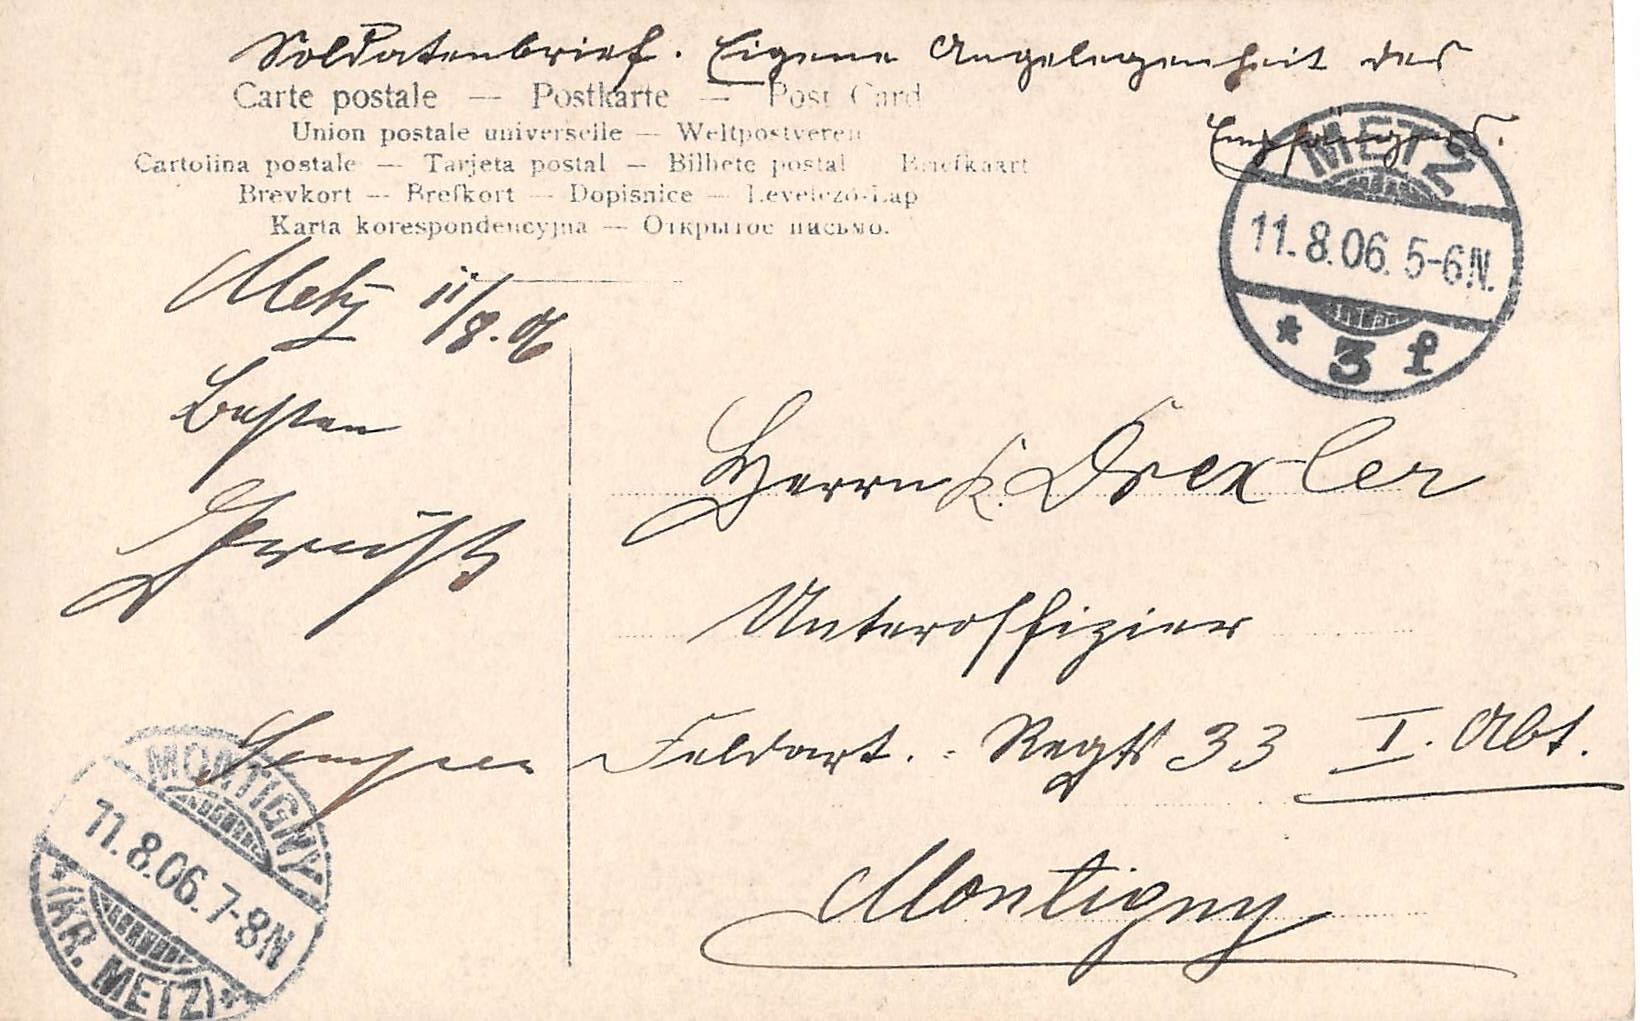 Soldatenbrief. Eigene Angelegenheit des
Empfängers.
Carte postale — Postkarte — Post Card
Union postale universelle — Weltpostverein
Cartolina postale — Tarjeta postal — Bilhete postal — Briefkaart
Brevkort — Brefkort — Dopisnice — Levelező-Lap
Karta korespondencyjna — Открытое письмо.
METZ
11.8.06. 5-6N.
* 3 f
Metz 11/8.06
Besten
Gruß
Herrn K. Drexler
Unteroffizier
Feldart.-Regts 33 I. Abt.
Montigny
MONTIGNY
11.8.06. 7-8N
* (KR. METZ) *